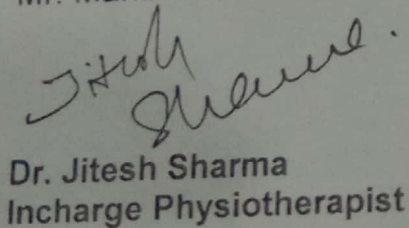 Jitesh
Sharma.
Dr. Jitesh Sharma
Incharge Physiotherapist